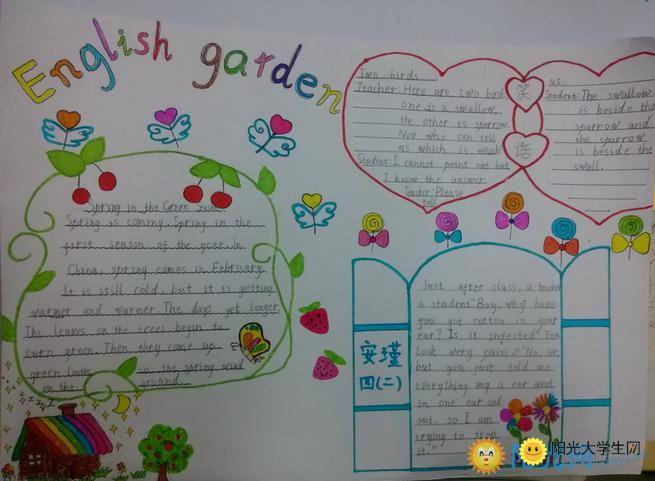 English garden
Two birds
Teacher: Here are two birds,
one is a swallow,
the other is sparrow.
Now who can tell
us which is which
Student: I cannot point out but
I know the answer
Teacher: Please
tell
笑
话
us.
Student: The swallow
is beside the
sparrow and
the sparrow
is beside the
swall.
Spring in the Green
Spring is coming. Spring in the
first season of the year. In
China, spring comes in February.
It is still cold, but it is getting
warmer and warmer. The days get longer.
The leaves on the trees begin to
turn green. Then they come up
green leaves in the spring wind
on the ground
Just after class, a
a student "Boy, why have
you got cotton in your
ear? Is it infected? You
look very pain." "No, sir
but you just told me
everything my a ear went
in one ear and
out, so I am
trying to stop
it."
安瑾
四(二)
阳光大学生网